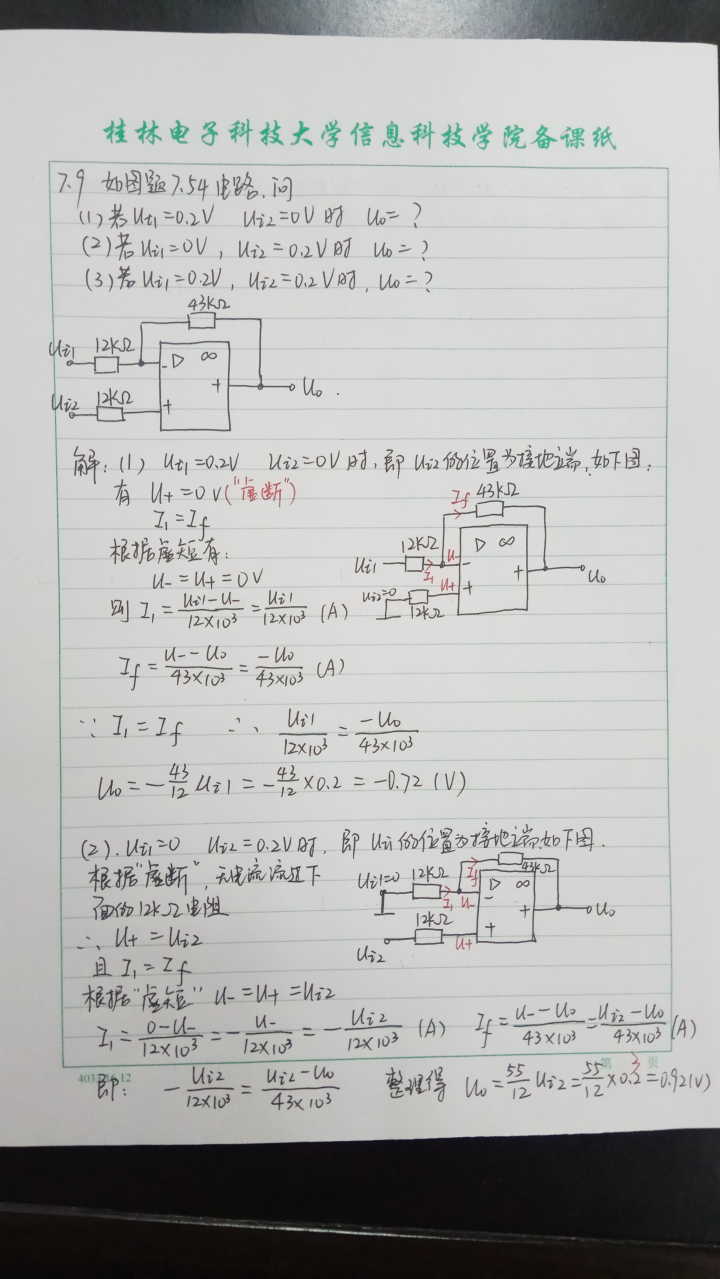 桂林电子科技大学信息科技学院备课纸
7.9 如图题7.54电路,问
(1)若Ui1=0.2V Ui2=0V时 Uo=?
(2)若Ui1=0V,Ui2=0.2V时 Uo=?
(3)若Ui1=0.2V,Ui2=0.2V时,Uo=?
43KΩ
Ui1 12KΩ - ▷ ∞
+ Uo.
Ui2 12KΩ +
解:(1) Ui1=0.2V Ui2=0V时,即Ui2的位置为接地端,如下图.
有 U+=0V("虚断")
I1=If
根据虚短有:
U-=U+=0V
则 I1=(Ui1-U-)/(12×10³)=Ui1/(12×10³) (A)
If 43KΩ
Ui1 12KΩ I1 U- - ▷ ∞
+ Uo
Ui2=0 12KΩ U+ +
If=(U--Uo)/(43×10³)=-Uo/(43×10³) (A)
∵ I1=If ∴ Ui1/(12×10³)=-Uo/(43×10³)
Uo=-43/12 Ui1=-43/12×0.2=-0.72(V)
(2).Ui1=0 Ui2=0.2V时,即Ui1的位置为接地端如下图.
根据"虚断",无电流流过下
面的12KΩ电阻
∴ U+=Ui2
且 I1=If
根据"虚短" U-=U+=Ui2
If 43KΩ
Ui1=0 12KΩ I1 U- - ▷ ∞
+ Uo
12KΩ U+ +
Ui2
I1=(0-U-)/(12×10³)=-U-/(12×10³)=-Ui2/(12×10³) (A) If=(U--Uo)/(43×10³)=(Ui2-Uo)/(43×10³)(A)
即: -Ui2/(12×10³)=(Ui2-Uo)/(43×10³) 整理得 Uo=55/12 Ui2=55/12×0.2=0.92(V)
页